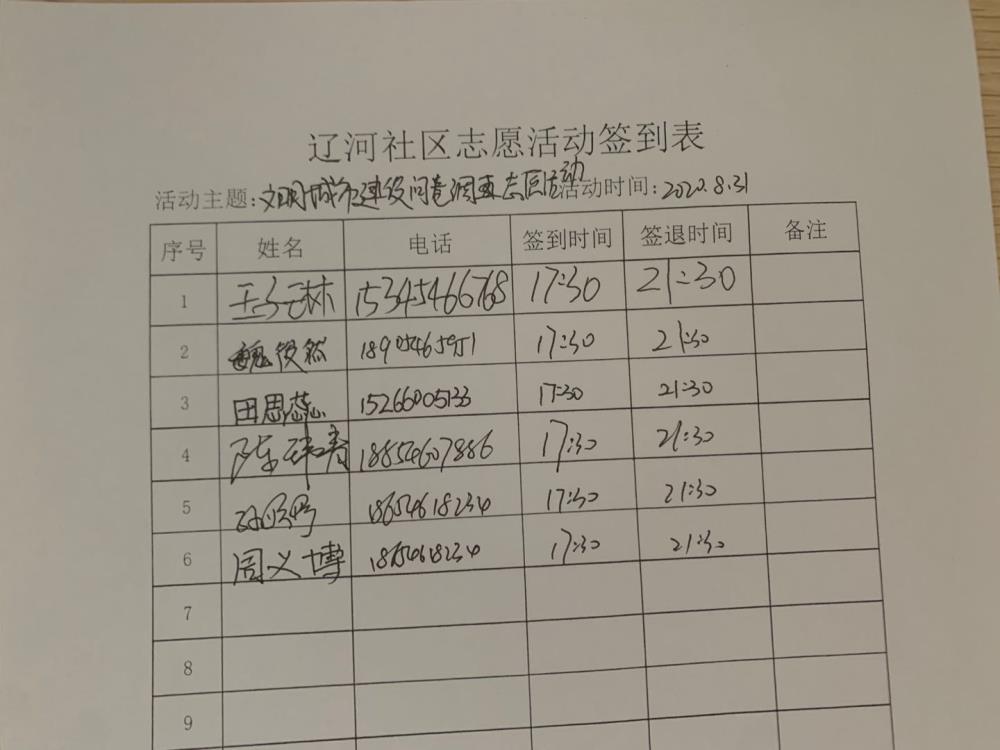 辽河社区志愿活动签到表
活动主题:文明城市建设问卷调查志愿活动 活动时间:2020.8.31
序号 姓名 电话 签到时间 签退时间 备注
1 王子林 15345466768 17:30 21:30
2 魏俊然 18905465951 17:30 21:30
3 田思蕊 15266005133 17:30 21:30
4 陈玮青 18854607886 17:30 21:30
5 18654618234 17:30 21:30
6 周义博 18654618234 17:30 21:30
7
8
9